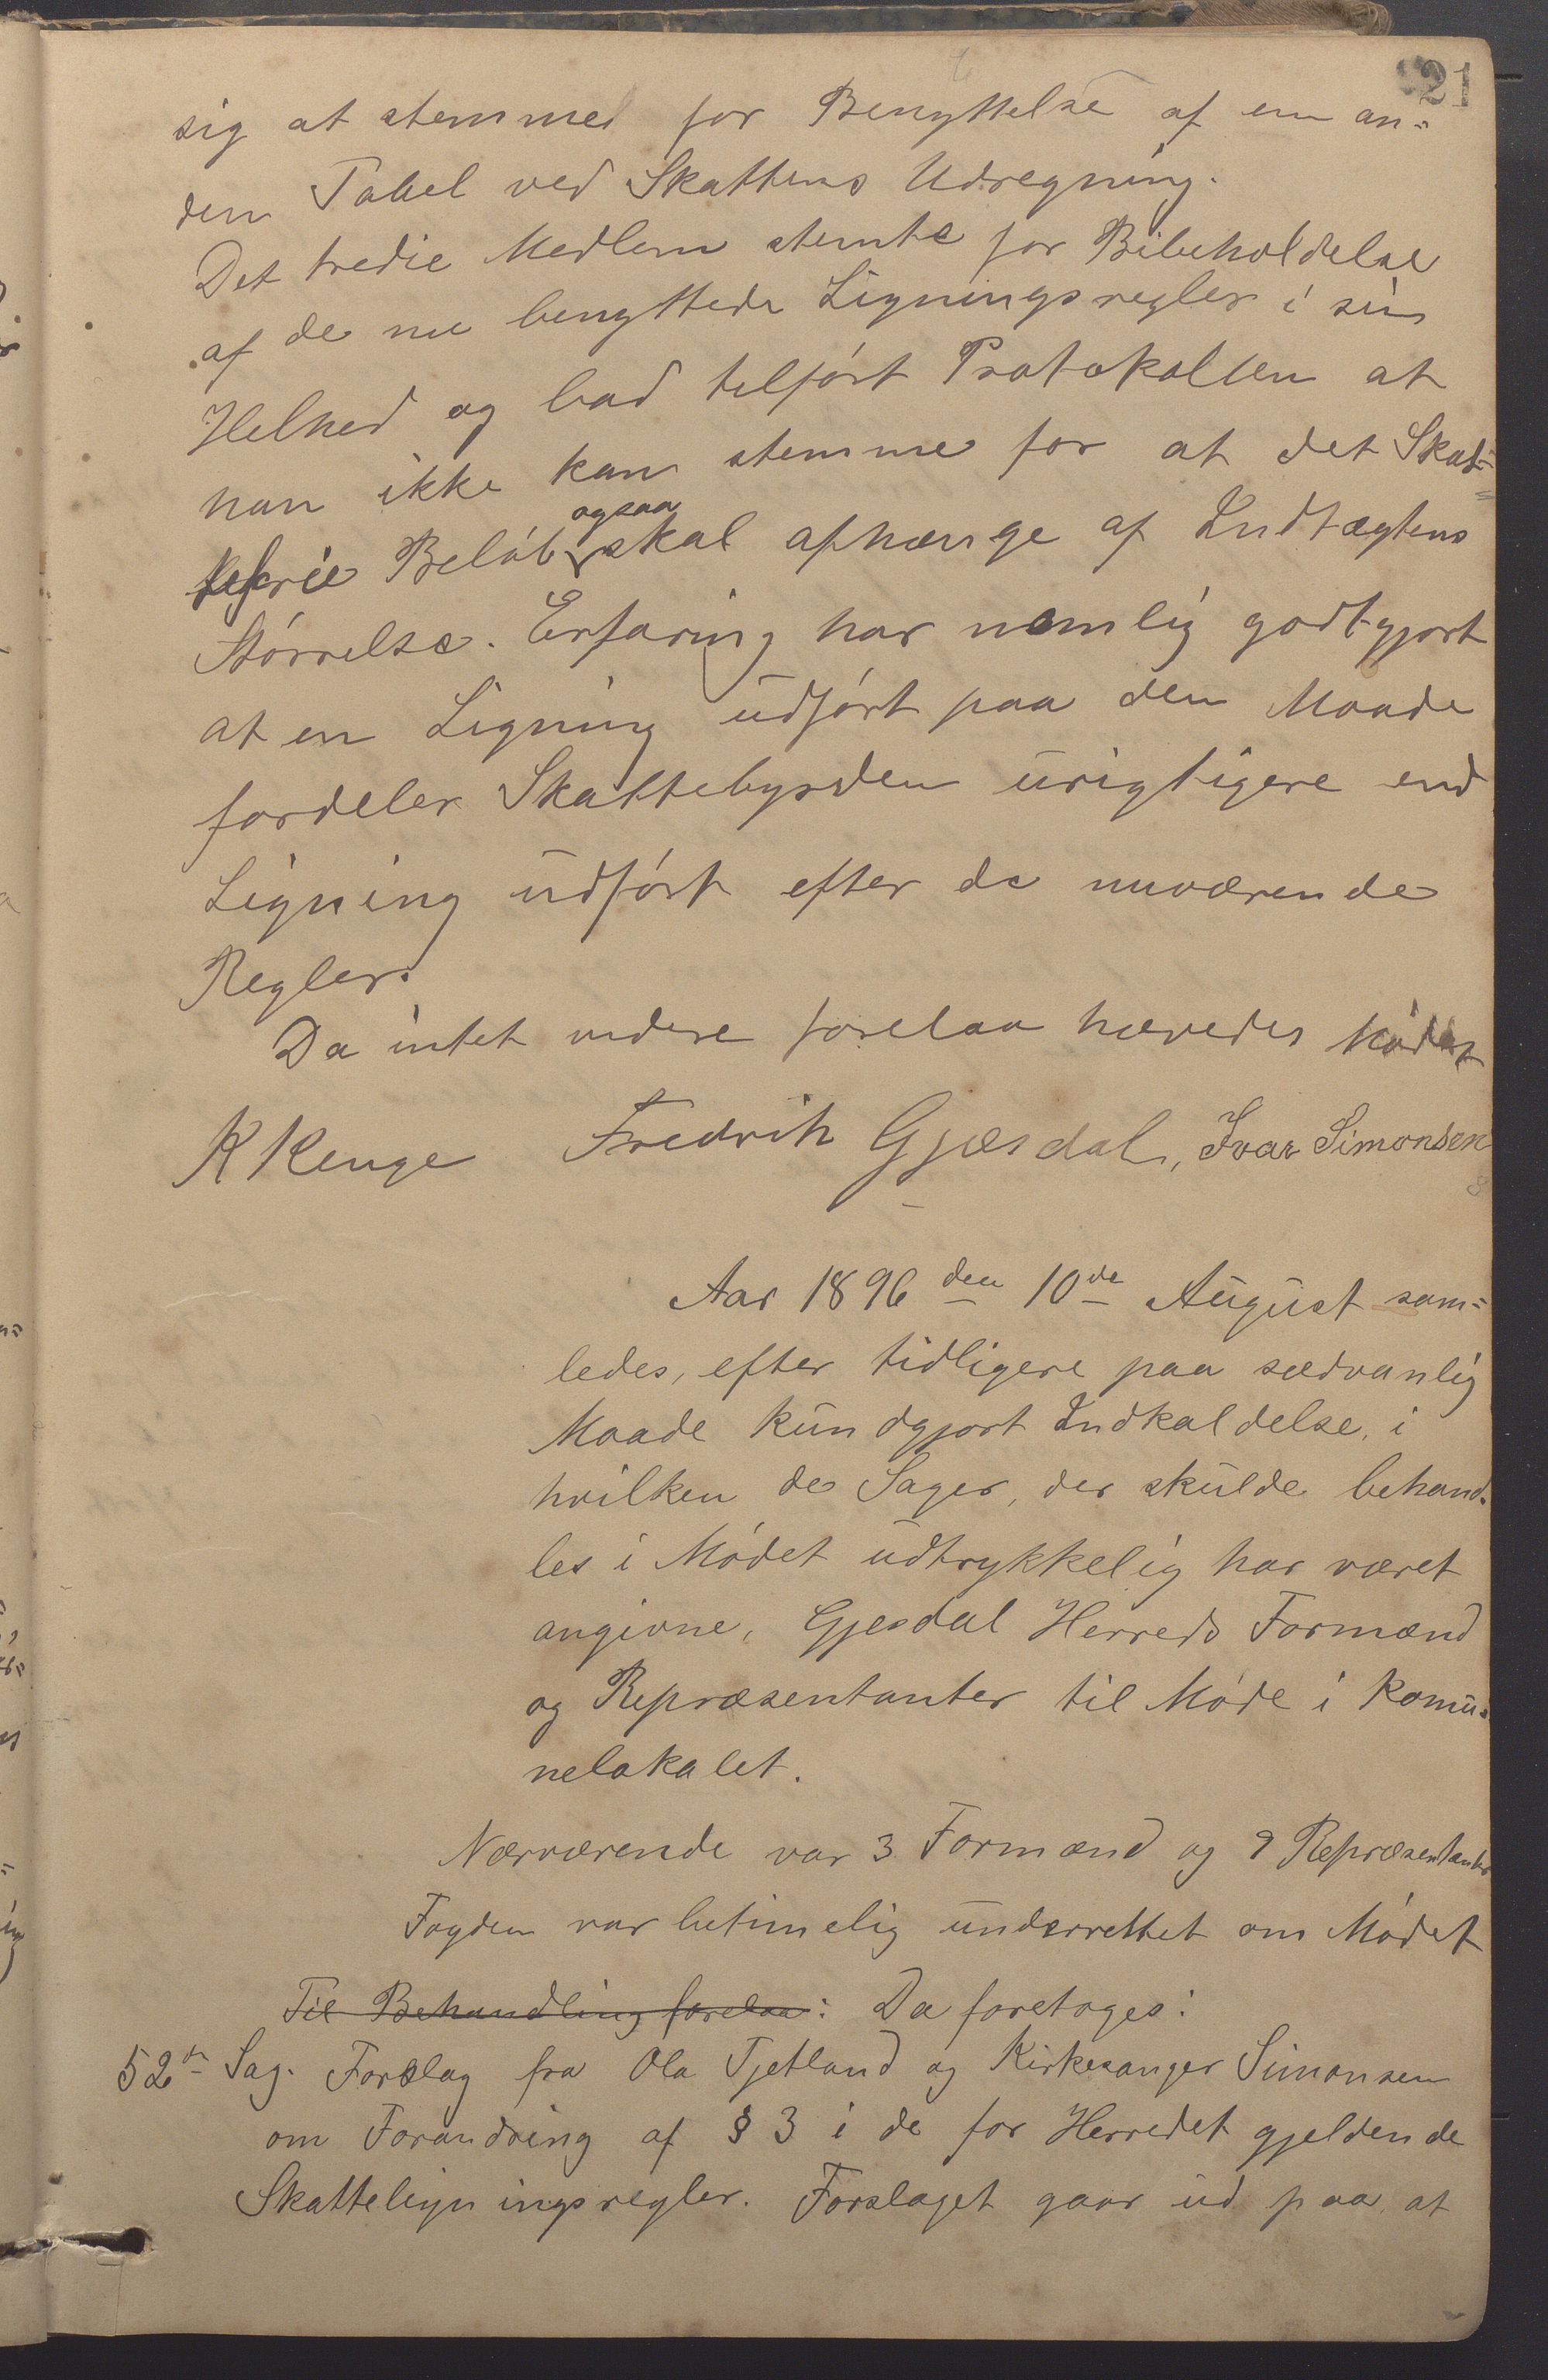 21
sig at stemmed for Benyttelse af en an=
den Tabel ved Skattens Udregning.
Det tredie Medlem stemte for Bibeholdelse
af de nu benyttede Ligningsregler i sin
Helhed og bad tilført Protokollen at
han ikke kan stemme for at det Skat=
tefrie Beløb ogsaa skal afhænge af Indtægtens
Størrelse. Erfaring har nemlig godtgjort
at en Ligning udført paa den Maade
fordeler Skattebyrden urigtigere end
Ligning udført efter de nuværende
Regler.
Da intet videre forelaa hævedes Mødet
K Kenge Fredrik Gjesdal, Ivar Simonsen
Aar 1896 den 10de August sam=
ledes, efter tidligere paa sædvanlig
Maade kundgjort Indkaldelse, i
hvilken de Sager, der skulde behand=
les i Mødet udtrykkelig har været
angivne, Gjesdal Herreds Formænd
og Repræsentanter til Møde i Komu=
nelokalet.
Nærværende var 3 Formænd og 9 Repræsentanter
Fogden var betimelig underrettet om Mødet
Til Behandling forelaa: Da foretoges:
52de Sag. Forslag fra Ola Tjetland og Kirkesanger Simonsen
om Forandring af § 3 i de for Herredet gjeldende
Skatteligningsregler. Forslaget gaar ud paa at